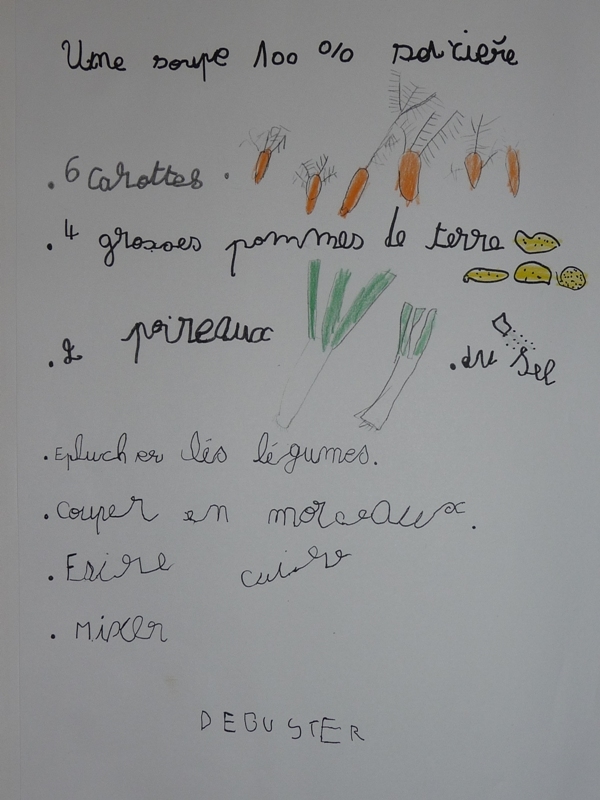 Une soupe 100 % sorcière
. 6 carottes .
. 4 grosses pommes de terre
. 2 poireaux
. du sel
. Eplucher lés légumes.
. couper en morceaux.
. Faire cuire
. Mixer
DEGUSTER